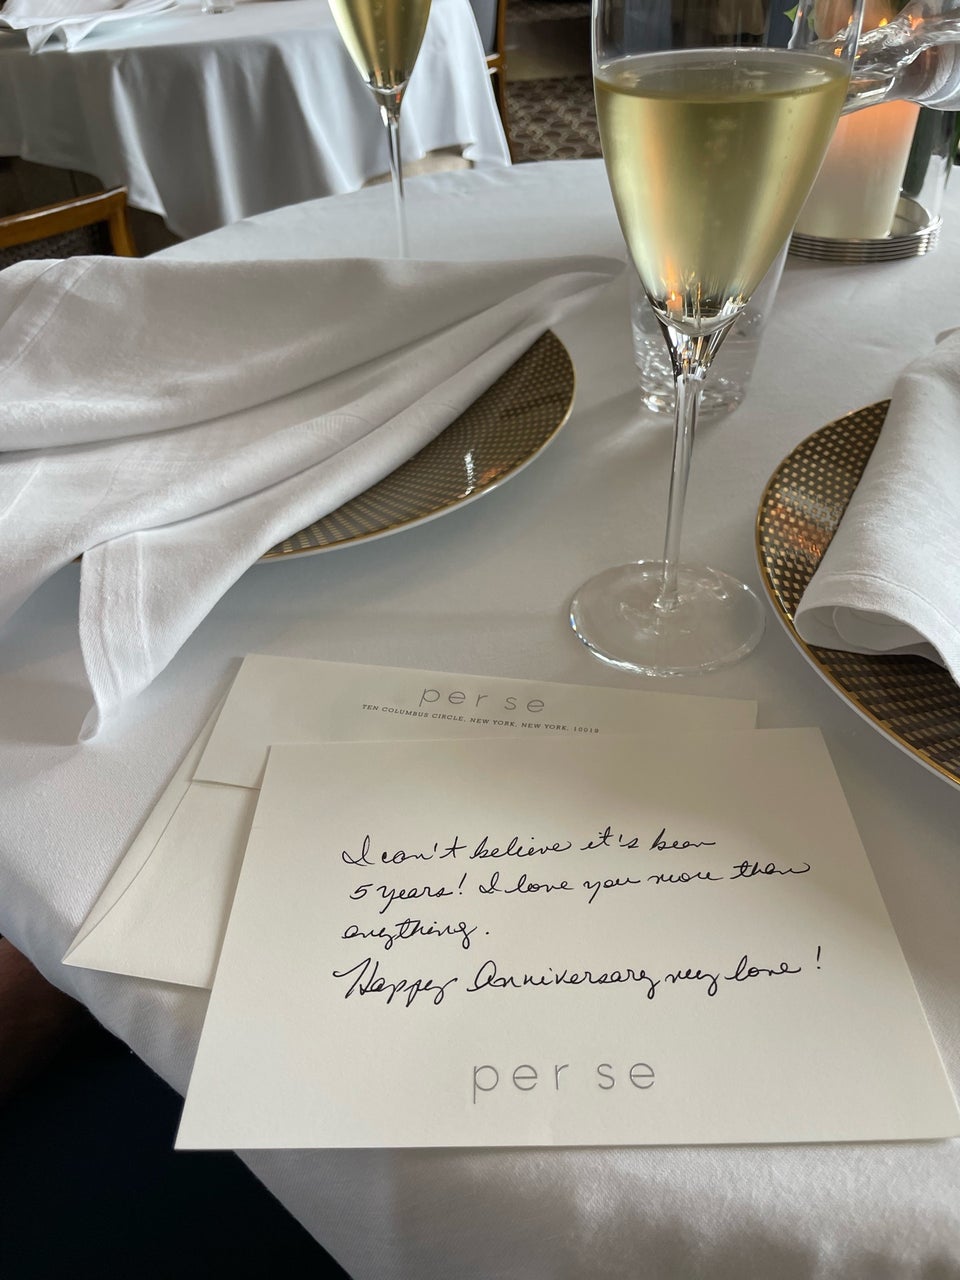 per se
TEN COLUMBUS CIRCLE, NEW YORK, NEW YORK, 10019
I can't believe it's been
5 years! I love you more than
anything.
Happy Anniversary my love!
per se